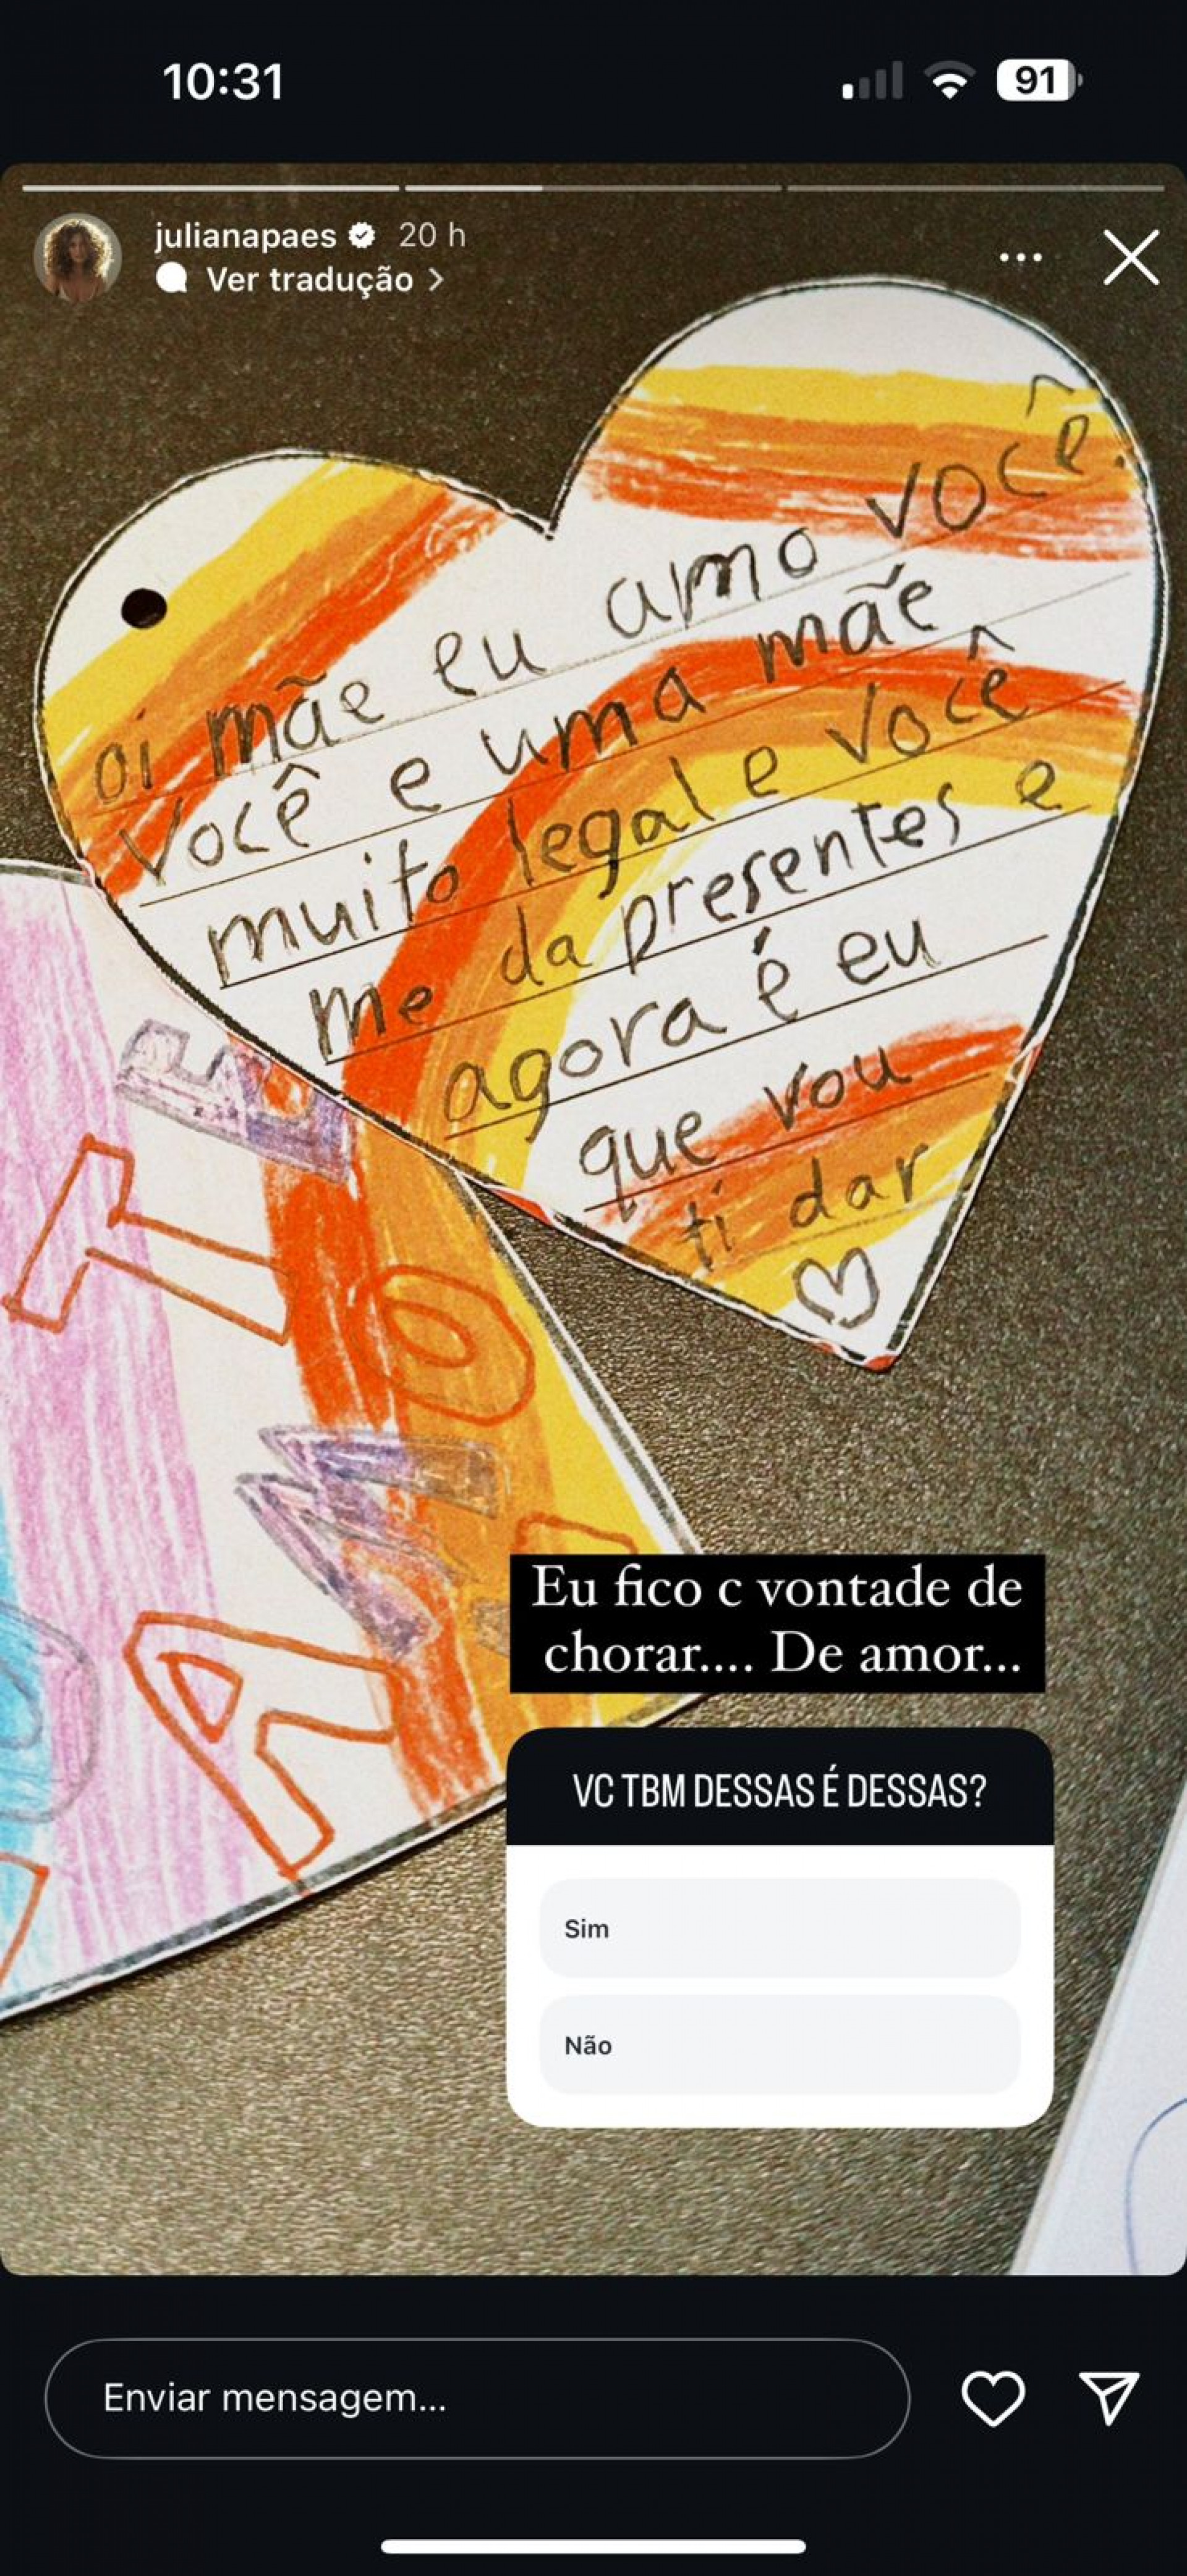 10:31
91
julianapaes 20 h
Ver tradução >
oi mãe eu amo você.
você e uma mãe
muito legal e você
me da presentes e
agora é eu
que vou
ti dar
TE
AMO
Eu fico c vontade de
chorar.... De amor...
VC TBM DESSAS É DESSAS?
Sim
Não
Enviar mensagem...